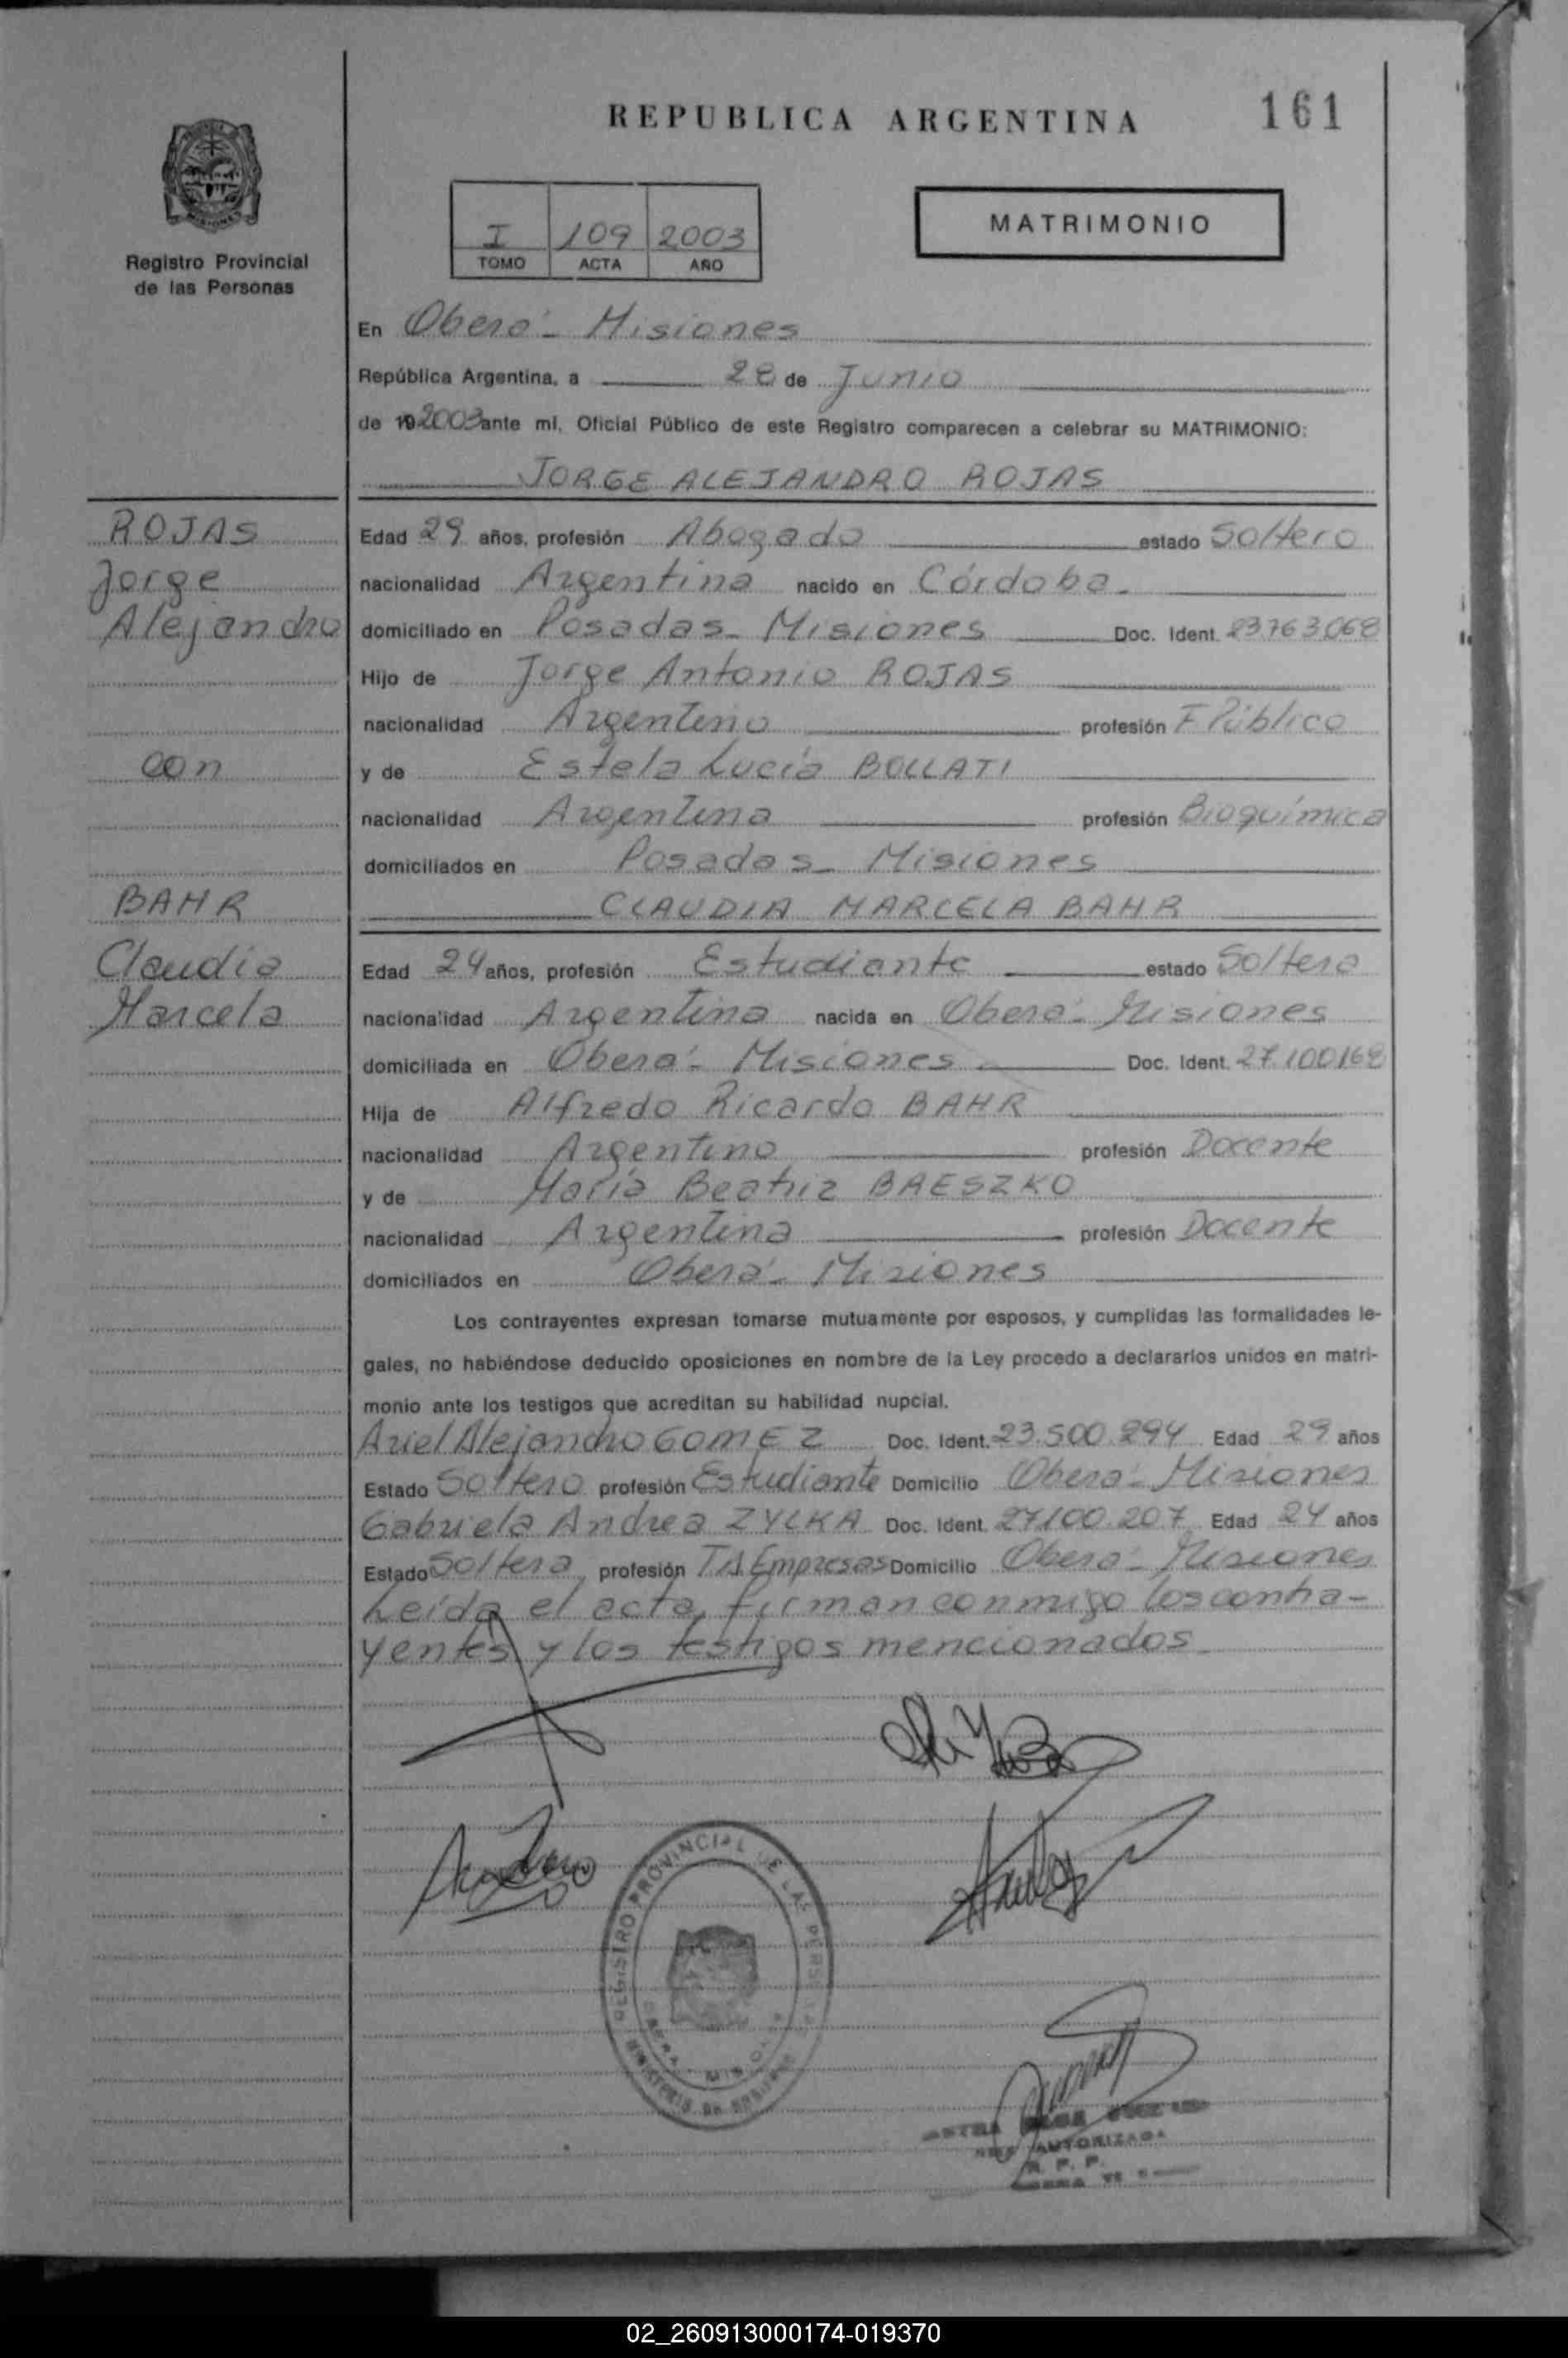 REPUBLICA ARGENTINA
161
MISIONES
Registro Provincial
de las Personas
I 109 2003
TOMO ACTA AÑO
MATRIMONIO
En Oberá - Misiones
República Argentina, a 28 de Junio
de 192003 ante mí, Oficial Público de este Registro comparecen a celebrar su MATRIMONIO:
JORGE ALEJANDRO ROJAS
ROJAS
Jorge
Alejandro
con
BAHR
Claudia
Marcela
Edad 29 años, profesión Abogado estado Soltero
nacionalidad Argentina nacido en Córdoba.
domiciliado en Posadas - Misiones Doc. Ident. 23.763.068
Hijo de Jorge Antonio ROJAS
nacionalidad Argentino profesión F Público
y de Estela Lucía BOLLATI
nacionalidad Argentina profesión Bioquímica
domiciliados en Posadas - Misiones
CLAUDIA MARCELA BAHR
Edad 24 años, profesión Estudiante estado Soltera
nacionalidad Argentina nacida en Oberá - Misiones
domiciliada en Oberá - Misiones Doc. Ident. 27.100168
Hija de Alfredo Ricardo BAHR
nacionalidad Argentino profesión Docente
y de María Beatriz BAESZKO
nacionalidad Argentina profesión Docente
domiciliados en Oberá - Misiones
Los contrayentes expresan tomarse mutuamente por esposos, y cumplidas las formalidades le-
gales, no habiéndose deducido oposiciones en nombre de la Ley procedo a declararlos unidos en matri-
monio ante los testigos que acreditan su habilidad nupcial.
Ariel Alejandro GOMEZ Doc. Ident. 23.500.294 Edad 29 años
Estado Soltero profesión Estudiante Domicilio Oberá - Misiones
Gabriela Andrea ZYLKA Doc. Ident. 27.100.207 Edad 24 años
Estado Soltera, profesión TA Empresas Domicilio Oberá - Misiones
Leída el acta, firman conmigo los contra-
yentes y los testigos mencionados.
REGISTRO PROVINCIAL DE LAS PERSONAS
AUTORIZADA
R. P. P.
02_260913000174-019370